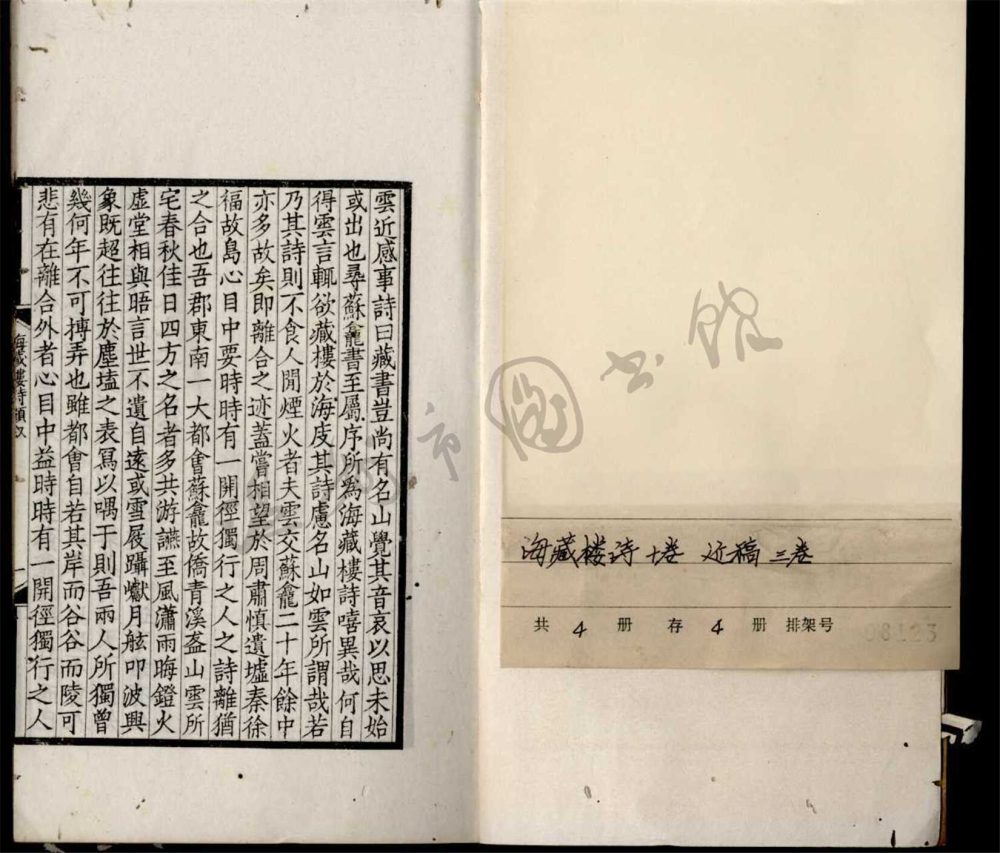 海藏楼诗 十卷 近稿 三卷
共 4 册 存 4 册 排架号 08123
雲近感事詩曰藏書豈尚有名山覺其音哀以思未始
或出也尋蘇龕書至屬序所為海藏樓詩嘻異哉何自
得雲言輒欲藏樓於海庋其詩慮名山如雲所謂哉若
乃其詩則不食人閒煙火者夫雲交蘇龕二十年餘中
亦多故矣即離合之迹蓋嘗相望於周肅慎遺墟秦徐
福故島心目中要時時有一開徑獨行之人之詩離猶
之合也吾郡東南一大都會蘇龕故僑青溪盋山雲所
宅春秋佳日四方之名者多共游讌至風瀟雨晦鐙火
虛堂相與晤言世不遺自遠或雪屐躡巘月舷叩波興
象既超往往於塵壒之表寫以喁于則吾兩人所獨曾
幾何年不可摶弄也雖都會自若其岸而谷谷而陵可
悲有在離合外者心目中益時時有一開徑獨行之人
海藏樓詩 一
市圖书馆